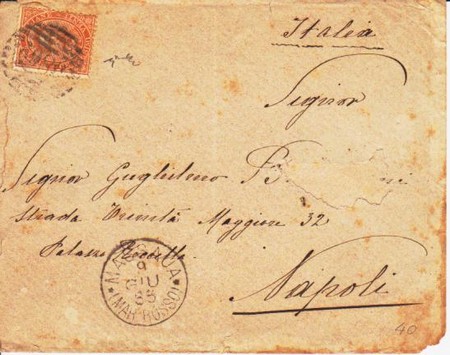 Italia
Signor
Signor Guglielmo B
Strada Trinità Maggiore 32
Palazzo
Napoli
MASSAUA
9
GIU
85
(MAR ROSSO)
40